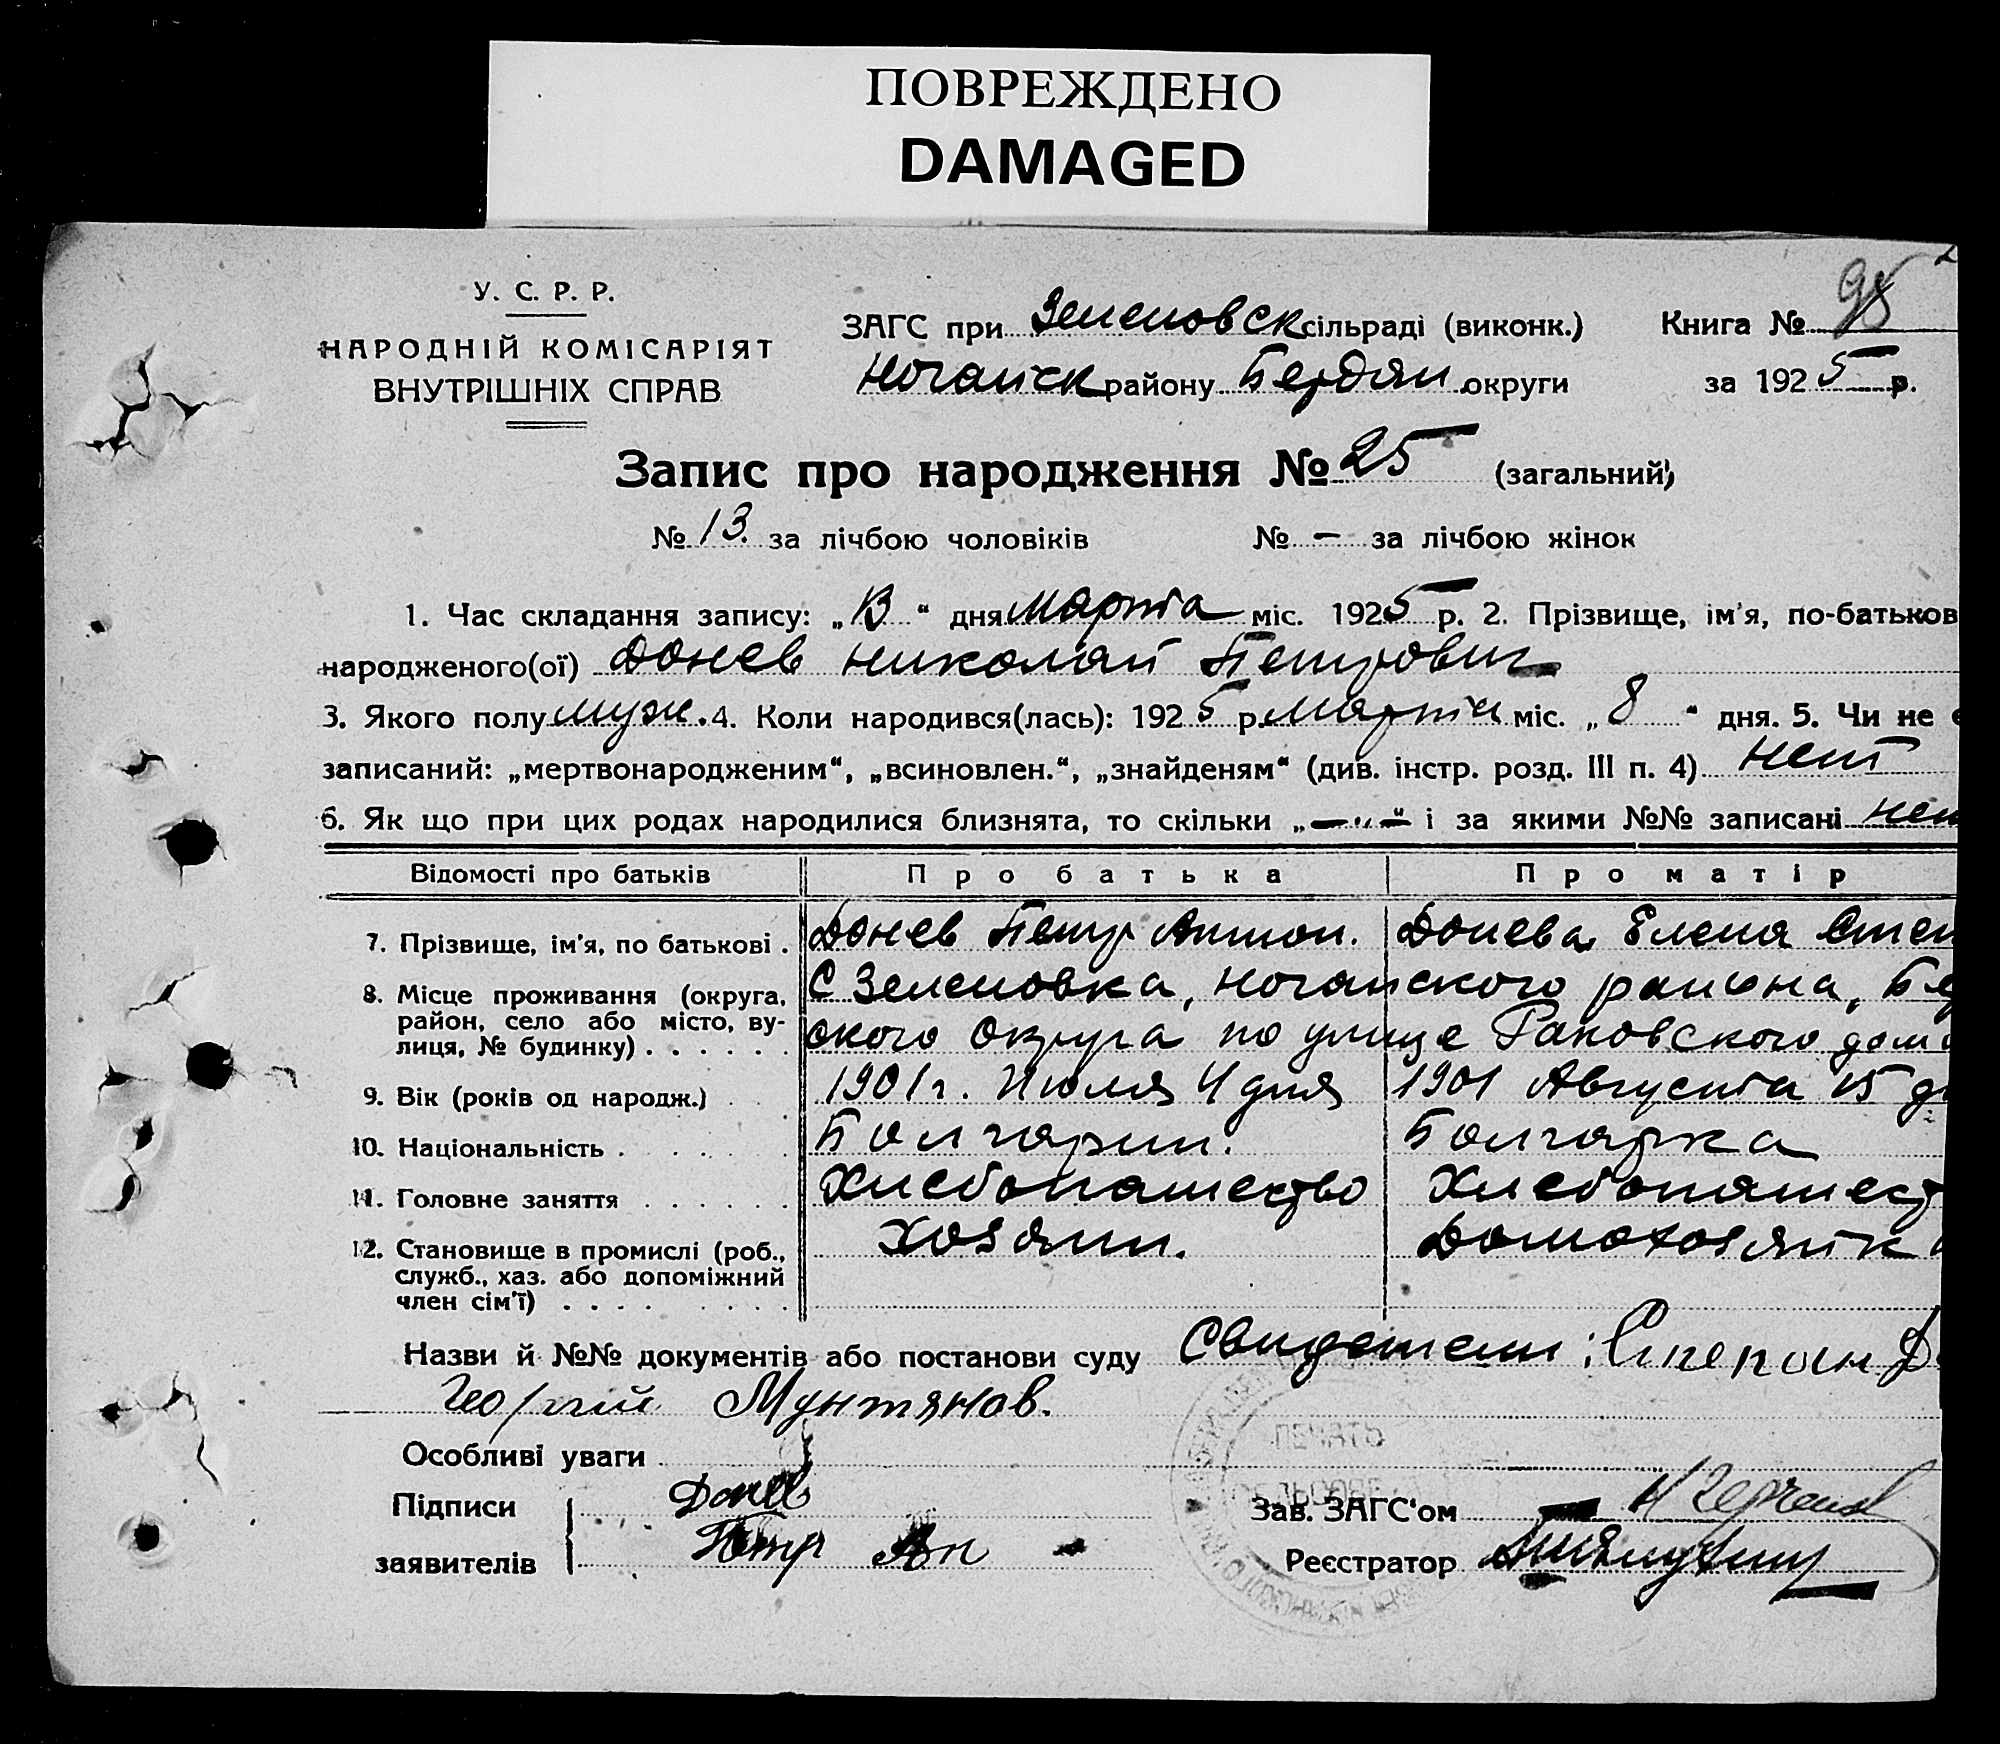 ПОВРЕЖДЕНО
DAMAGED
У. С. Р. Р.
НАРОДНІЙ КОМІСАРІЯТ
ВНУТРІШНІХ СПРАВ
ЗАГС при Зеленовск сільраді (виконк.)
Книга №
Ногайск району Бердян. округи
за 1925 р.
Запис про народження № 25 (загальний)
№ 13. за лічбою чоловіків № — за лічбою жінок
1. Час складання запису: „13“ дня марта міс. 1925 р. 2. Прізвище, ім'я, по-батьков
народженого(ої) Донев Николай Петрович
3. Якого полу муж. 4. Коли народився(лась): 1925 р. марта міс. „8“ дня. 5. Чи не є
записаний: „мертвонародженим“, „всиновлен.“, „знайденям“ (див. інстр. розд. III п. 4) нет
6. Як що при цих родах народилися близнята, то скільки „—„—“ і за якими №№ записані нет
Відомості про батьків Про батька Про матір
7. Прізвище, ім'я, по батькові . Донев Петр Антон. Донева Елена Степ
8. Місце проживання (округа, район, село або місто, вулиця, № будинку) . . . . . . С Зеленовка, Ногайского района, Бер
ского округа по улице Раковского дом
9. Вік (років од народж.) . . . 1901 г. Июля 4 дня 1901 Августа 15 д
10. Національність . . . . . Болгарин. Болгарка
11. Головне заняття . . . . . . Хлебопашество Хлебопашест
12. Становище в промислі (роб., служб., хаз. або допоміжний член сім'ї) . . . . . . . . Хозяин. Домохозяйка
Назви й №№ документів або постанови суду Свидетели:
Георгий Мунтянов.
Особливі уваги
Підписи Донев
заявителів Петр Ан
Зав. ЗАГС'ом
Реєстратор
ПЕЧАТЬ